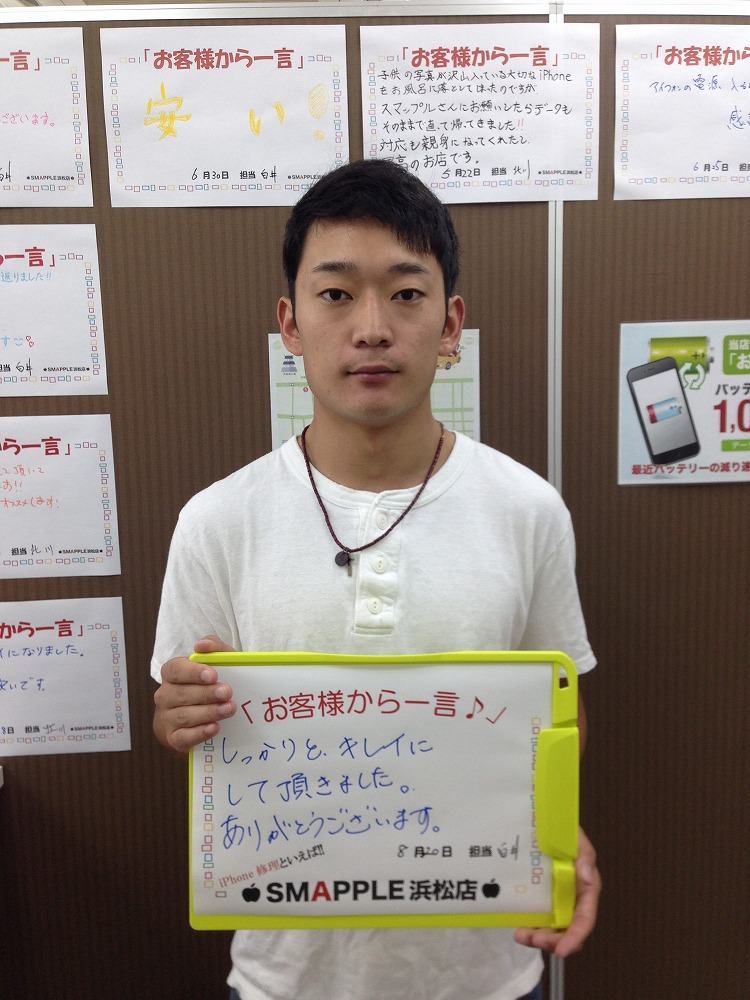 「お客様から一言」
安い
6月30日 担当 白井
●SMAPPLE浜松店●
「お客様から一言」
子供の写真が沢山入っている大切なiPhone
をお風呂に落としてしまったのですが
スマップルさんにお願いしたらデータも
そのままで直って帰ってきました!!
対応も親身になってくれたし
高のお店です。
5月22日 担当 北川
●SMAPPLE浜松店●
「お客様から一
アイフォンの電源
6月25日 担当
ございます。
●SMAPPLE浜松店●
ら一言」
返りました!!
担当 白井
●SMAPPLE浜松店●
から一言」
て頂いて
担当 北川
●SMAPPLE浜松店●
から一言」
イになりました。
安いです。
8日 担当
●SMAPPLE浜松店●
当店
「お
バッテ
1,0
デー
最近バッテリーの減り速
〈お客様から一言♪〉
しっかりと、キレイに
して頂きました。
ありがとうございます。
8月20日 担当 白井
iPhone修理といえば!!
SMAPPLE浜松店